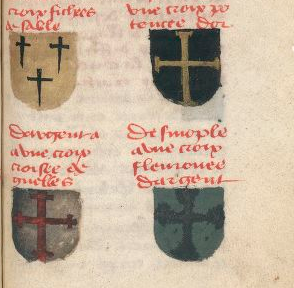 croix fichees
de sable
vne croix po
tencee dor
dargent a
a vne croix
croisee de
guelles
de sinople
a vne croix
fleuronee
dargent